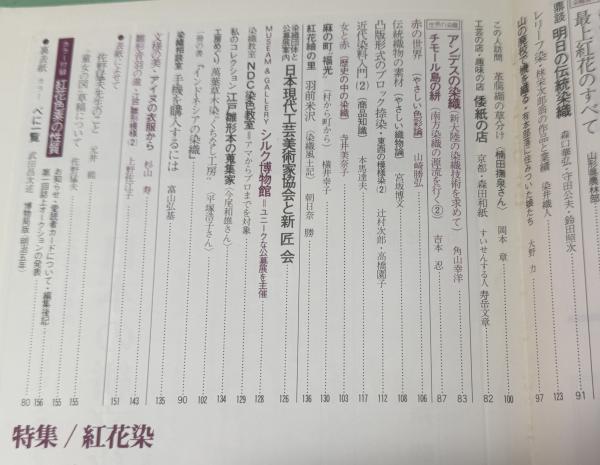 最上紅花のすべて 山形県農林部 91
鼎談 明日の伝統染織 森口華弘・守田公夫・鈴田照次 123
レリーフ染・桝本次郎翁の作品と業績 染井織人 97
山の廃校で機を織る・有本部落に住みついた娘たち 大野力
この人訪問 革筋織の草分け(楠田撫泉さん) 岡本章 100
工芸の店・趣味の店 倭紙の店 京都・森田和紙 すいせんする人 寿岳文章 82
世界の染織 アンデスの染織(新大陸の染織技術を求めて) 角山幸洋 83
チモール島の絣(南方染織の源流を行く②) 吉本忍 87
赤の世界(やさしい色彩論) 山崎勝弘 106
伝統織物の素材(やさしい織物論) 宮坂博文 108
凸版形式のブロック捺染・東西の模様染(2) 辻村次郎・高橋園子 112
近代染料入門(2)(商品知識) 本馬達夫 117
女と赤(歴史の中の染織) 寺井美奈子 103
麻の町・福光(村から町から) 横井幸子 110
紅花繪の里 羽前米沢(染織風土記) 朝日奈勝 136
染織団体と公募展案内 日本現代工芸美術家協会と新匠会 126
MUSEAM & GALLERY シルク博物館=ユニークな公募展を主催 128
染織教室 NDC染色教室=アマからプロまでを対象 129
私のコレクション 江戸雛形本の蒐集家(今尾和雄さん) 124
工房めぐり 萬葉草木染・くちなし工房(平塚浩子さん) 134
一冊の書「インドネシアの染織」 102
染織相談室 手機を購入するには 富山弘基 90
文様の美・アイヌの衣服から 杉山寿 135
雛形衣裳の美・江戸雛形模様(2) 上野佐江子 143
●表紙によせて 151
佐野猛夫先生のこと 元井能
童女の図・草稿について 佐野猛夫 155
お知らせ・愛読者カードについて・編集後記 155
第一回誌上オークションの発表 156
カラー付録 紅花色素の性質
●裏表紙 カラー べに一覧 武田昌大述 博物館版(明治五年) 80
特集/紅花染